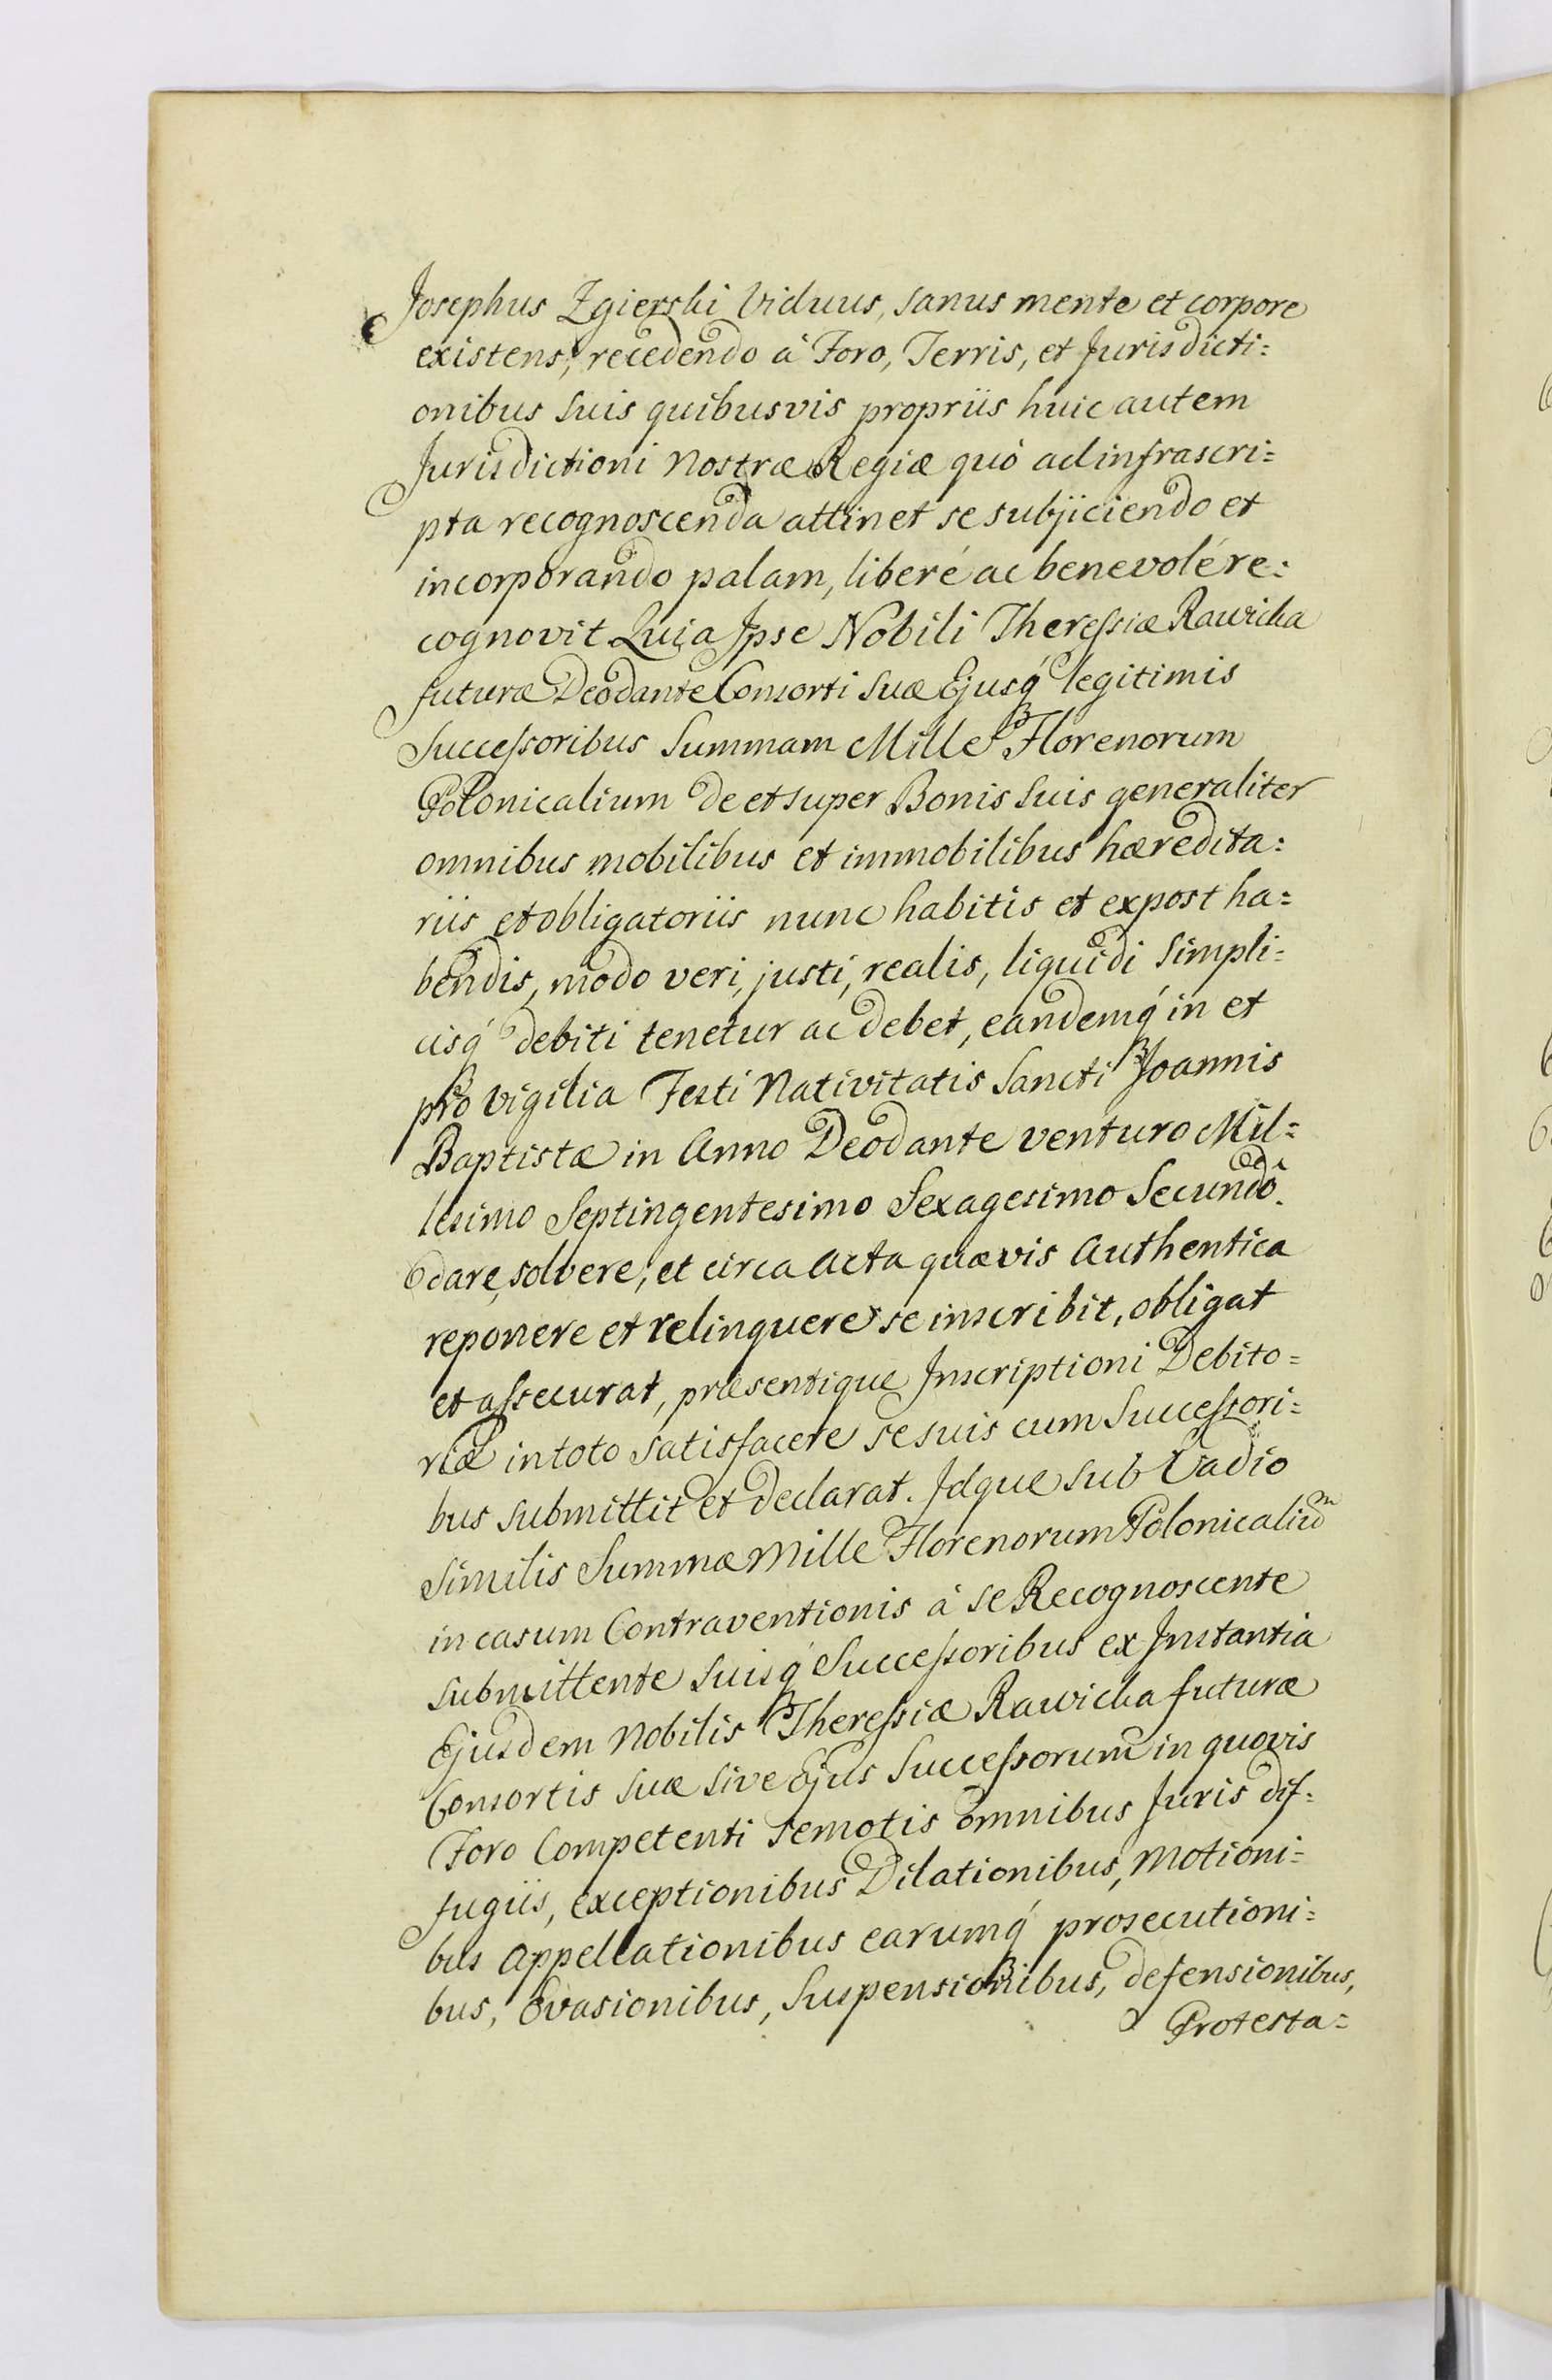 Josephus Zgierski Viduus, sanus mente et corpore
existens, recedendo à Foro, Terris, et Jurisdicti=
onibus suis quibusvis propriis huic autem
Jurisdictioni Nostræ Regiæ quò ad infrascri=
pta recognoscenda attinet se subjiciendo et
incorporando palam, liberé ac benevolé re=
cognovit Quia Ipse Nobili Theressiæ Rawicka
futuræ Deodante Consorti suæ Ejusq́ legitimis
Successoribus Summam Mille Florenorum
Polonicalium de et super Bonis suis generaliter
omnibus mobilibus et immobilibus hæredita=
riis et obligatoriis nunc habitis et expost ha=
bendis, modo veri, justi, realis, liquidi simpli=
cisq́ debiti tenetur ac debet, eandemq́ in et
pro Vigilia Festi Nativitatis Sancti Joannis
Baptistæ in Anno Deodante venturo Mil=
lesimo Septingentesimo Sexagesimo Secundô
dare, solvere, et circa Acta quævis Authentica
reponere et relinquere se inscribit, obligat
et assecurat, præsentique Inscriptioni Debito=
riæ in toto satisfacere se suis cum Successori=
bus submittit et declarat. Idque sub Vadio
similis Summæ Mille Florenorum Polonicaliũ
in casum Contraventionis à se Recognoscente
submittente suisq́ Successoribus ex Instantia
Ejusdem Nobilis Theressiæ Rawicka futuræ
Consortis suæ sive Ejus Successorum in quovis
Foro Competenti semotis omnibus Juris dif=
fugiis, exceptionibus Dilationibus, Motioni=
bus Appellationibus earumq́ prosecutioni=
bus, Evasionibus, Suspensionibus, defensionibus,
Protesta=